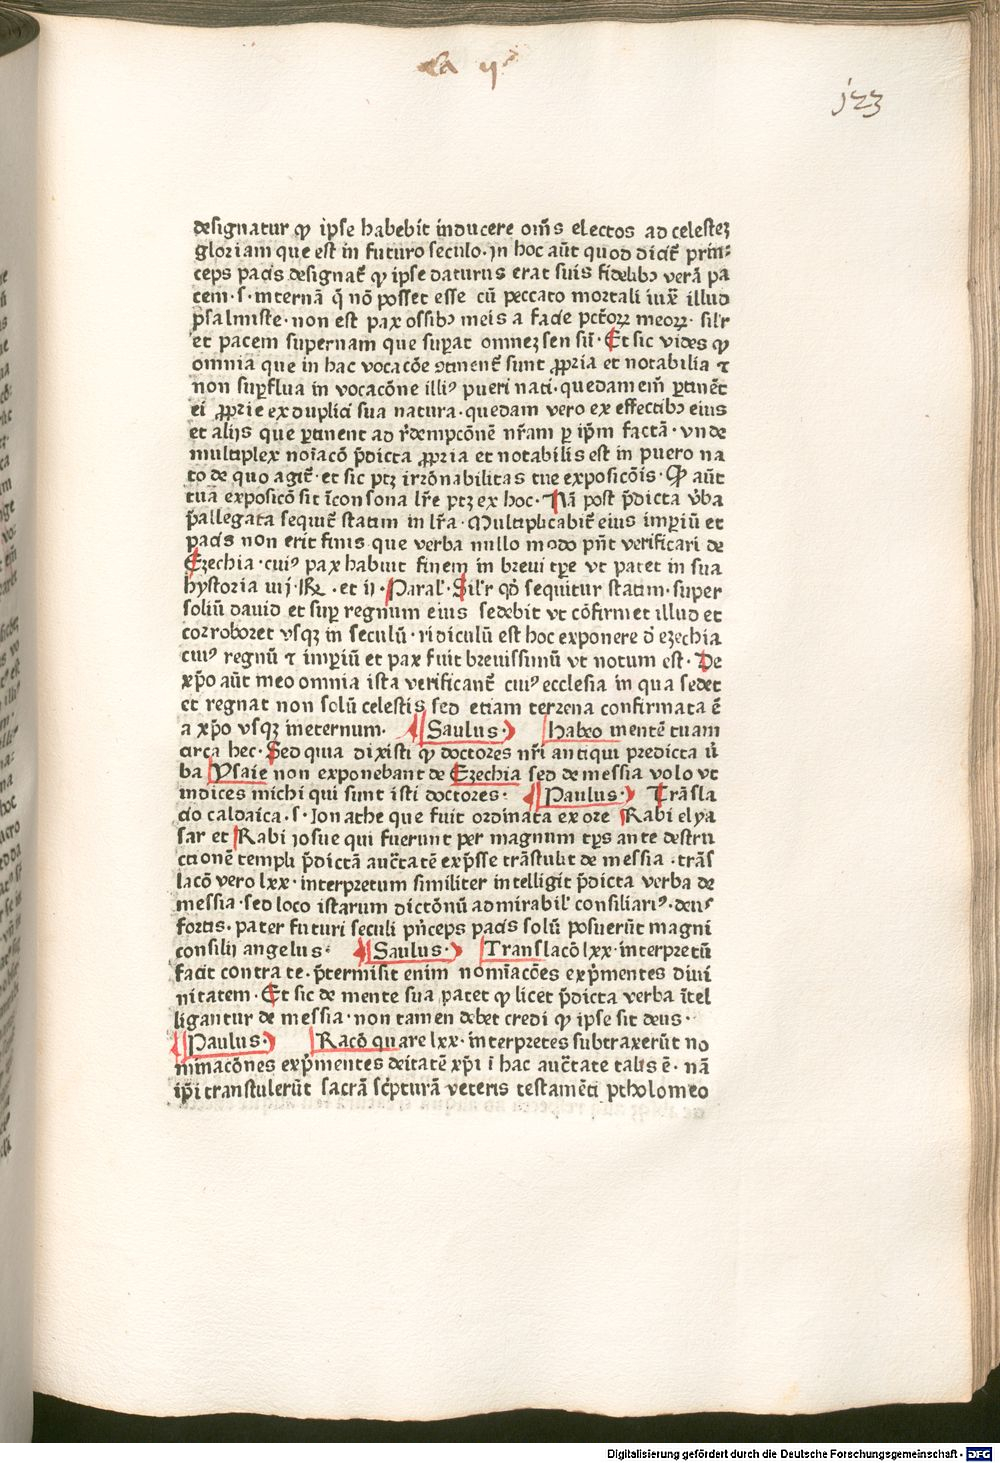 Ca ij
123
designatur ꝙ ipse habebit inducere om̄s electos ad celestez
gloriam que est in futuro seculo· In hoc aūt quod dicit̄ prin⸗
ceps pacis designat̄ ꝙ ipse daturus erat suis fidelibꝫ verā pa
cem·s·internā q̄ nō posset esse cū peccato mortali iux̄ illud
psalmiste·non est pax ossibꝫ meis a facie pctōꝝ meoꝝ·sil'r
et pacem supernam que suꝑat omnez sensū·Et sic vides ꝙ
omnia que in hac vocacōe ꝯtinent̄ sunt ꝓpria et notabilia ⁊
non suꝑflua in vocacōne illiꝰ pueri nati·quedam em̄ ꝑtinēt
ei ꝓprie ex duplici sua natura·quedam vero ex effectibꝫ eius
et alijs que ꝑtinent ad r̄dempcōnē nr̄am ꝑ ip̄m factā·vnde
multiplex noīacō p̄dicta ꝓpria et notabilis est in puero na
to de quo agit̄·et sic ptꝫ irrōnabilitas tue exposicōis·Ꝙ aūt
tua exposicō sit īconsona lr̄e ptꝫ ex hoc·Nā post p̄dicta v̄ba
p̄allegata sequit̄ statim in lr̄a·Multiplicabit̄ eius imꝑiū et
pacis non erit finis que verba nullo modo pn̄t verificari de
Ezechia·cuiꝰ pax habuit finem in breui tꝑe vt patet in sua
hystoria iiij·R̄·et ij·Paral'·Sil'r qd̄ sequitur statim·super
soliū dauid et suꝑ regnum eius sedebit vt cōfirmet illud et
corroboret vsqꝫ in seculū·ridiculū est hoc exponere d̄ ezechia
cuiꝰ regnū ⁊ imꝑiū et pax fuit breuissimū vt notum est·De
xp̄o aūt meo omnia ista verificant̄ cuiꝰ ecclesia in qua sedet
et regnat non solū celestis sed etiam terrena confirmata ē
a xp̄o vsqꝫ ineternum· Saulus· Habeo mentē tuam
circa hec·Sed quia dixisti ꝙ doctores nr̄i antiqui predicta v̄
ba Ysaie non exponebant de Ezechia sed de messia volo vt
indices michi qui sunt isti doctores· Paulus· Trāsla
cio caldaica·s·Ionathe que fuit ordinata ex ore Rabi elya
sar et Rabi josue qui fuerunt per magnum tp̄s ante destru
ctionē templi p̄dictā auct̄atē exp̄sse trāstulit de messia·trās
lacō vero lxx·interpretum similiter intelligit p̄dicta verba de
messia·sed loco istarum dictōnū admirabil' consiliariꝰ·deus
fortis·pater futuri seculi pn̄ceps pacis solū posuerūt magni
consilij angelus· Saulus· Translacō lxx·interpretū
facit contra te·p̄termisit enim nomīacōes exp̄mentes diui
nitatem·Et sic de mente sua patet ꝙ licet p̄dicta verba ītel
ligantur de messia·non tamen debet credi ꝙ ipse sit deus·
Paulus· Racō quare lxx·interpretes subtraxerūt no
minacōnes exp̄mentes deitatē xp̄i ī hac auct̄ate talis ē·nā
ip̄i transtulerūt sacrā sc̄pturā veteris testamēti ptholomeo
Digitalisierung gefördert durch die Deutsche Forschungsgemeinschaft - DFG